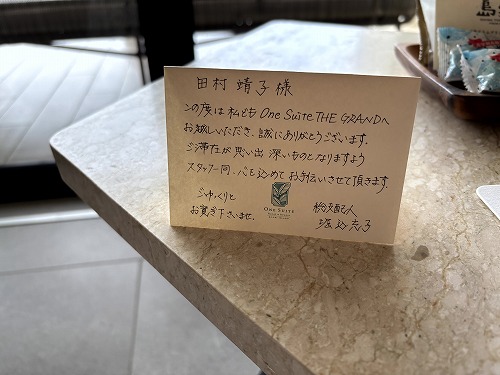 田村 靖子 様
この度は私ども One Suite THE GRANDへ
お越しいただき、誠にありがとうございます。
ご滞在が思い出深いものとなりますよう
スタッフ一同、心を込めてお手伝いさせて頂きます。
ごゆっくりと
お寛ぎ下さいませ。
ONE SUITE
総支配人
島